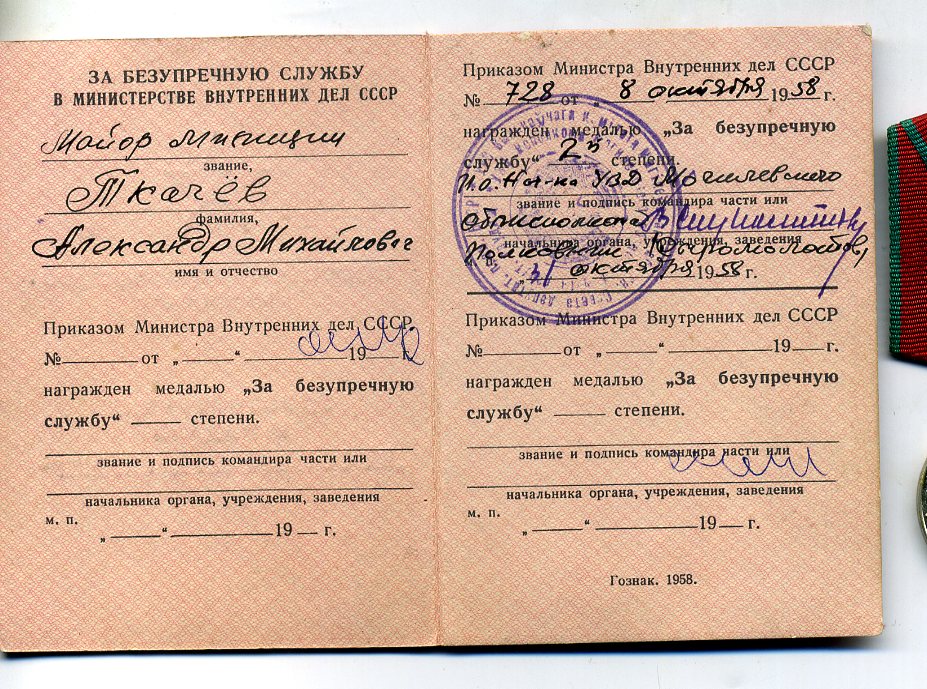 ЗА БЕЗУПРЕЧНУЮ СЛУЖБУ
В МИНИСТЕРСТВЕ ВНУТРЕННИХ ДЕЛ СССР
Майор милиции
звание,
Ткачёв
фамилия,
Александр Михайлович
имя и отчество
Приказом Министра Внутренних дел СССР
№ от „ “ 19 г.
награжден медалью „За безупречную
службу“ степени.
звание и подпись командира части или
начальника органа, учреждения, заведения
м. п.
„ “ 19 г.
Приказом Министра Внутренних дел СССР
№ 728 от 8 октября 1958 г.
награжден медалью „За безупречную
службу“ 2й степени.
Нач-ка УВД Могилевского
звание и подпись командира части или
облисполкома
начальника органа, учреждения, заведения
Полковник
„31 октября 1958 г.
Приказом Министра Внутренних дел СССР
№ от „ “ 19 г.
награжден медалью „За безупречную
службу“ степени.
звание и подпись командира части или
начальника органа, учреждения, заведения
м. п.
„ “ 19 г.
Гознак. 1958.